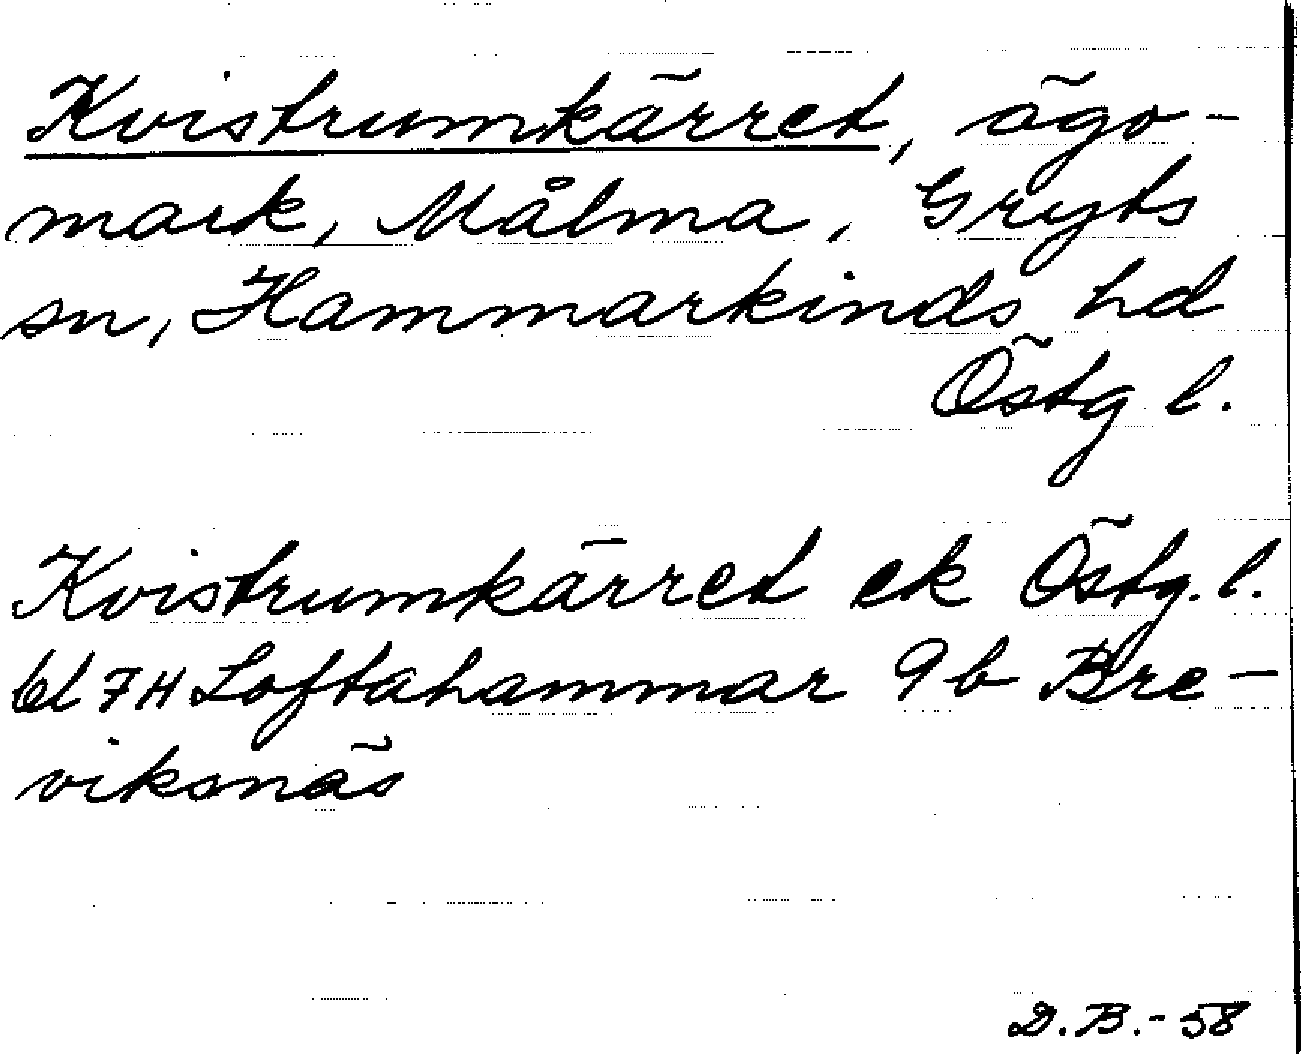 Kvistrumkärret, ägo-
mark, Målma, Gryts
sn, Hammarkinds hd
Östg l.
Kvistrumkärret ek Östg. l.
bl 7H Loftahammar 9 b Bre-
viksnäs
D. B. - 58